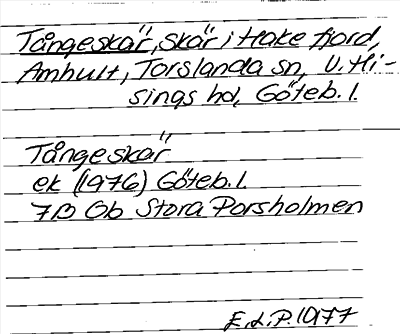 Tångeskär, skär i Hake fjord,
Amhult, Torslanda sn, V. Hi-
sings hd, Göteb. l.
Tångeskär
ek (1976) Göteb. l.
7B Ob Stora Porsholmen
E.L.P. 1977